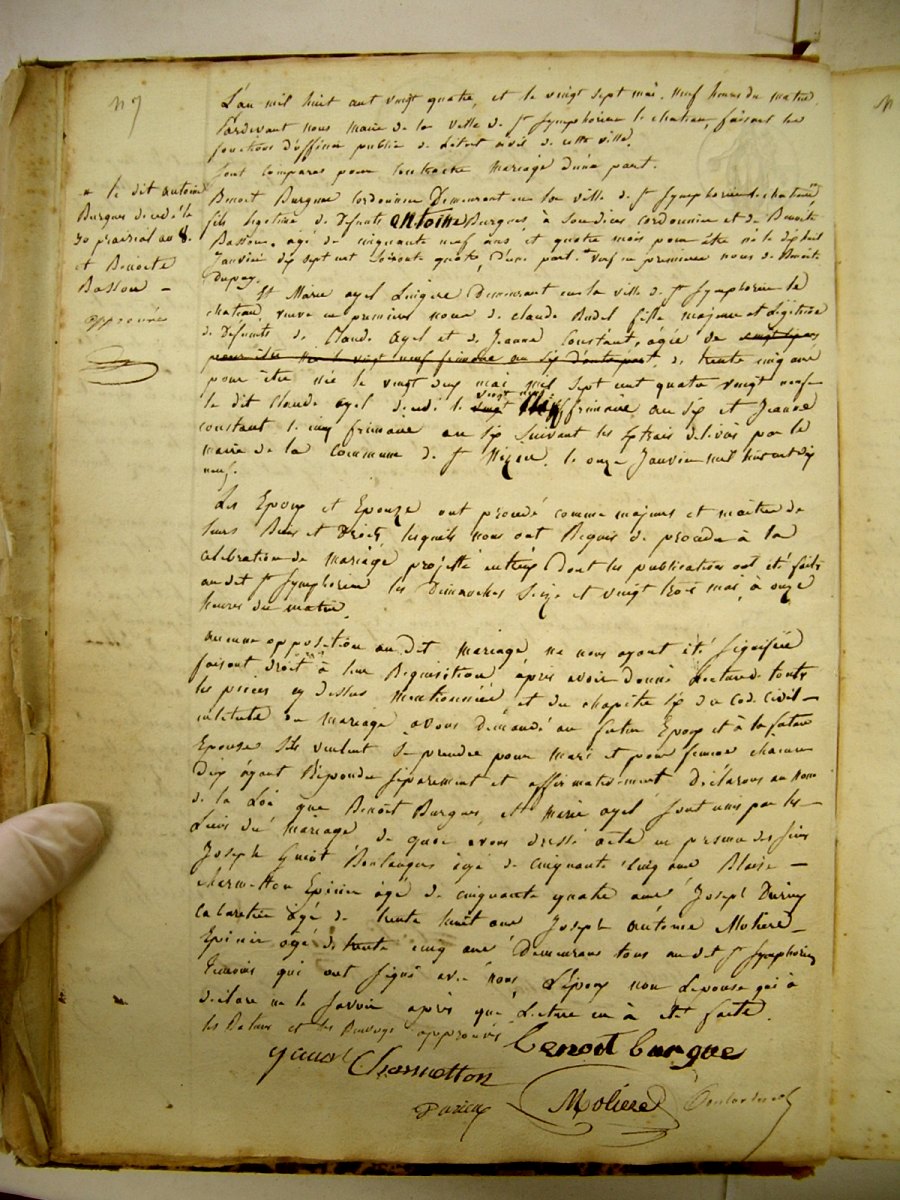 N 7
L'an mil huit cent vingt quatre, et le vingt sept mai, neuf heures du matin,
Pardevant nous Maire de la ville de St Symphorien le chateau, faisant les
fonctions d'officier public de l'état civil de cette ville,
Sont comparus pour contracter mariage d'une part.
Benoit Burgue Cordonnier Demeurant en la ville de St Symphorien le chateau
fils legitime de Defunts Antoine Burgues, cordonnier et de Benoite
Basson, agé de cinquante neuf ans et quatre mois pour être né le dix huit
Janvier dix sept cent soixante quatre, d'une part. Veuf en premiere noces de Benoite
Dupuy.
* le dit antoine
Burgues décédé le
30 prairial an 8.
et Benoite
Basson –
approuvée
Et Marie ayel Demeurant en la ville de St Symphorien le
chateau, veuve en premiers noces de Claude fille majeure et légitime
de Defunts de Claude Ayel et de Jeanne Constant, agée de
pour être née le vingt neuf frimaire an six d'autre part, de trente cinq ans
pour être née le vingt deux mai mil sept cent quatre vingt neuf
le dit Claude ayel décédé le vingt neuf frimaire an six et Jeanne
constant le cinq frimaire an six suivant les Extraits délivrés par le
maire de la Commune de St le onze Janvier mil huit cent dix
neuf.
Les Epoux et Epouze ont procédé comme majeurs et maitre de
leurs Biens et Droits lesquels nous ont Requis de procéder à la
célébration du mariage projetté entr'eux Dont les publications ont été faites
audit St Symphorien les Dimanches Seize et vingt trois mai à onze
heures du matin
aucune opposition au dit mariage ne nous ayant été signifiée
faisant droit à leur Requisition après avoir donné lecture de toutes
les pièces cy dessus mentionnées et du chapitre six du Code Civil –
intitulé du mariage avons demandé au futur Epoux et à la future
Epouse s'ils veulent se prendre pour mari et pour femme chacun
D'eux ayant Répondu séparément et affirmativement Déclarons au nom
de la Loi que Benoit Burgues, et Marie ayel sont unis par les –
Liens du mariage de quoi avons dressé acte en présence des sieurs
Joseph Guiot Boulanger agé de cinquante cinq ans Blaise –
charmetton Epicier agé de cinquante quatre ans Joseph
Cabaretier agé de trente huit ans Joseph antoine Moliere –
Epicier agé de trente cinq ans Demeurans tous au dit St Symphorien
Temoins qui ont signé avec nous L'époux non L'epouse qui a
déclaré ne le savoir après que Lecture en a été faite.
les Ratures et les Renvoys approuvés
guiot Charmetton Benoit burgue
Moliere